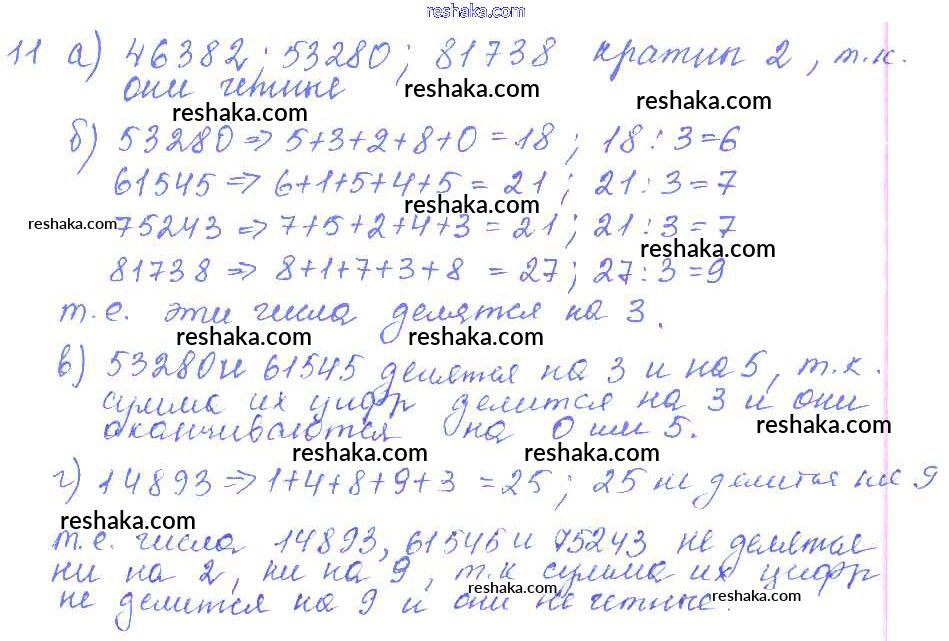 reshaka.com
11 а) 46382; 53280; 81738 кратны 2, т.к.
они четные
reshaka.com reshaka.com reshaka.com
б) 53280 => 5+3+2+8+0 = 18; 18 : 3 = 6
61545 => 6+1+5+4+5 = 21; 21 : 3 = 7
reshaka.com
reshaka.com 75243 => 7+5+2+4+3 = 21; 21 : 3 = 7
reshaka.com
81738 => 8+1+7+3+8 = 27; 27 : 3 = 9
т.е. эти числа делятся на 3.
reshaka.com reshaka.com
в) 53280 и 61545 делятся на 3 и на 5, т.к.
сумма их цифр делится на 3 и они
оканчиваются на 0 или 5.
reshaka.com
reshaka.com reshaka.com
г) 14893 => 1+4+8+9+3 = 25; 25 не делится на 9
reshaka.com
т.е. числа 14893, 61545 и 75243 не делятся
ни на 2, ни на 9, т.к сумма их цифр
не делится на 9 и они не четные.
reshaka.com reshaka.com